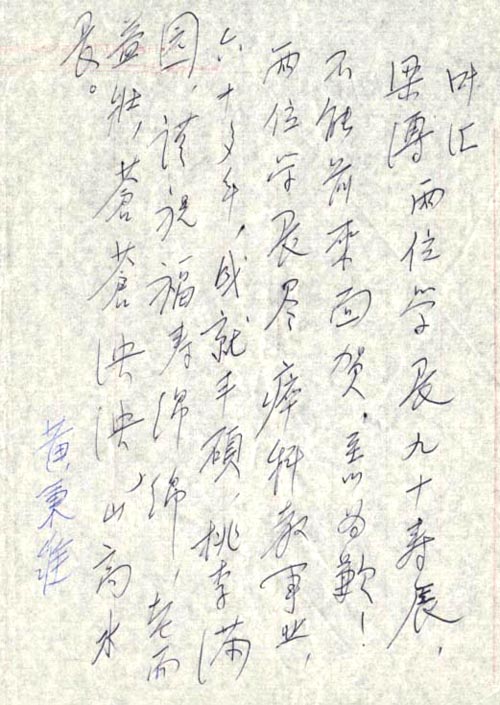 叶汇
梁溥两位学长九十寿辰，
不能前来面贺，至以为歉！
两位学长尽瘁科教事业，
六十多年，成就丰硕，桃李满
园，谨祝福寿绵绵，老而
益壮，蒼蒼泱泱，山高水
长。
黄秉维